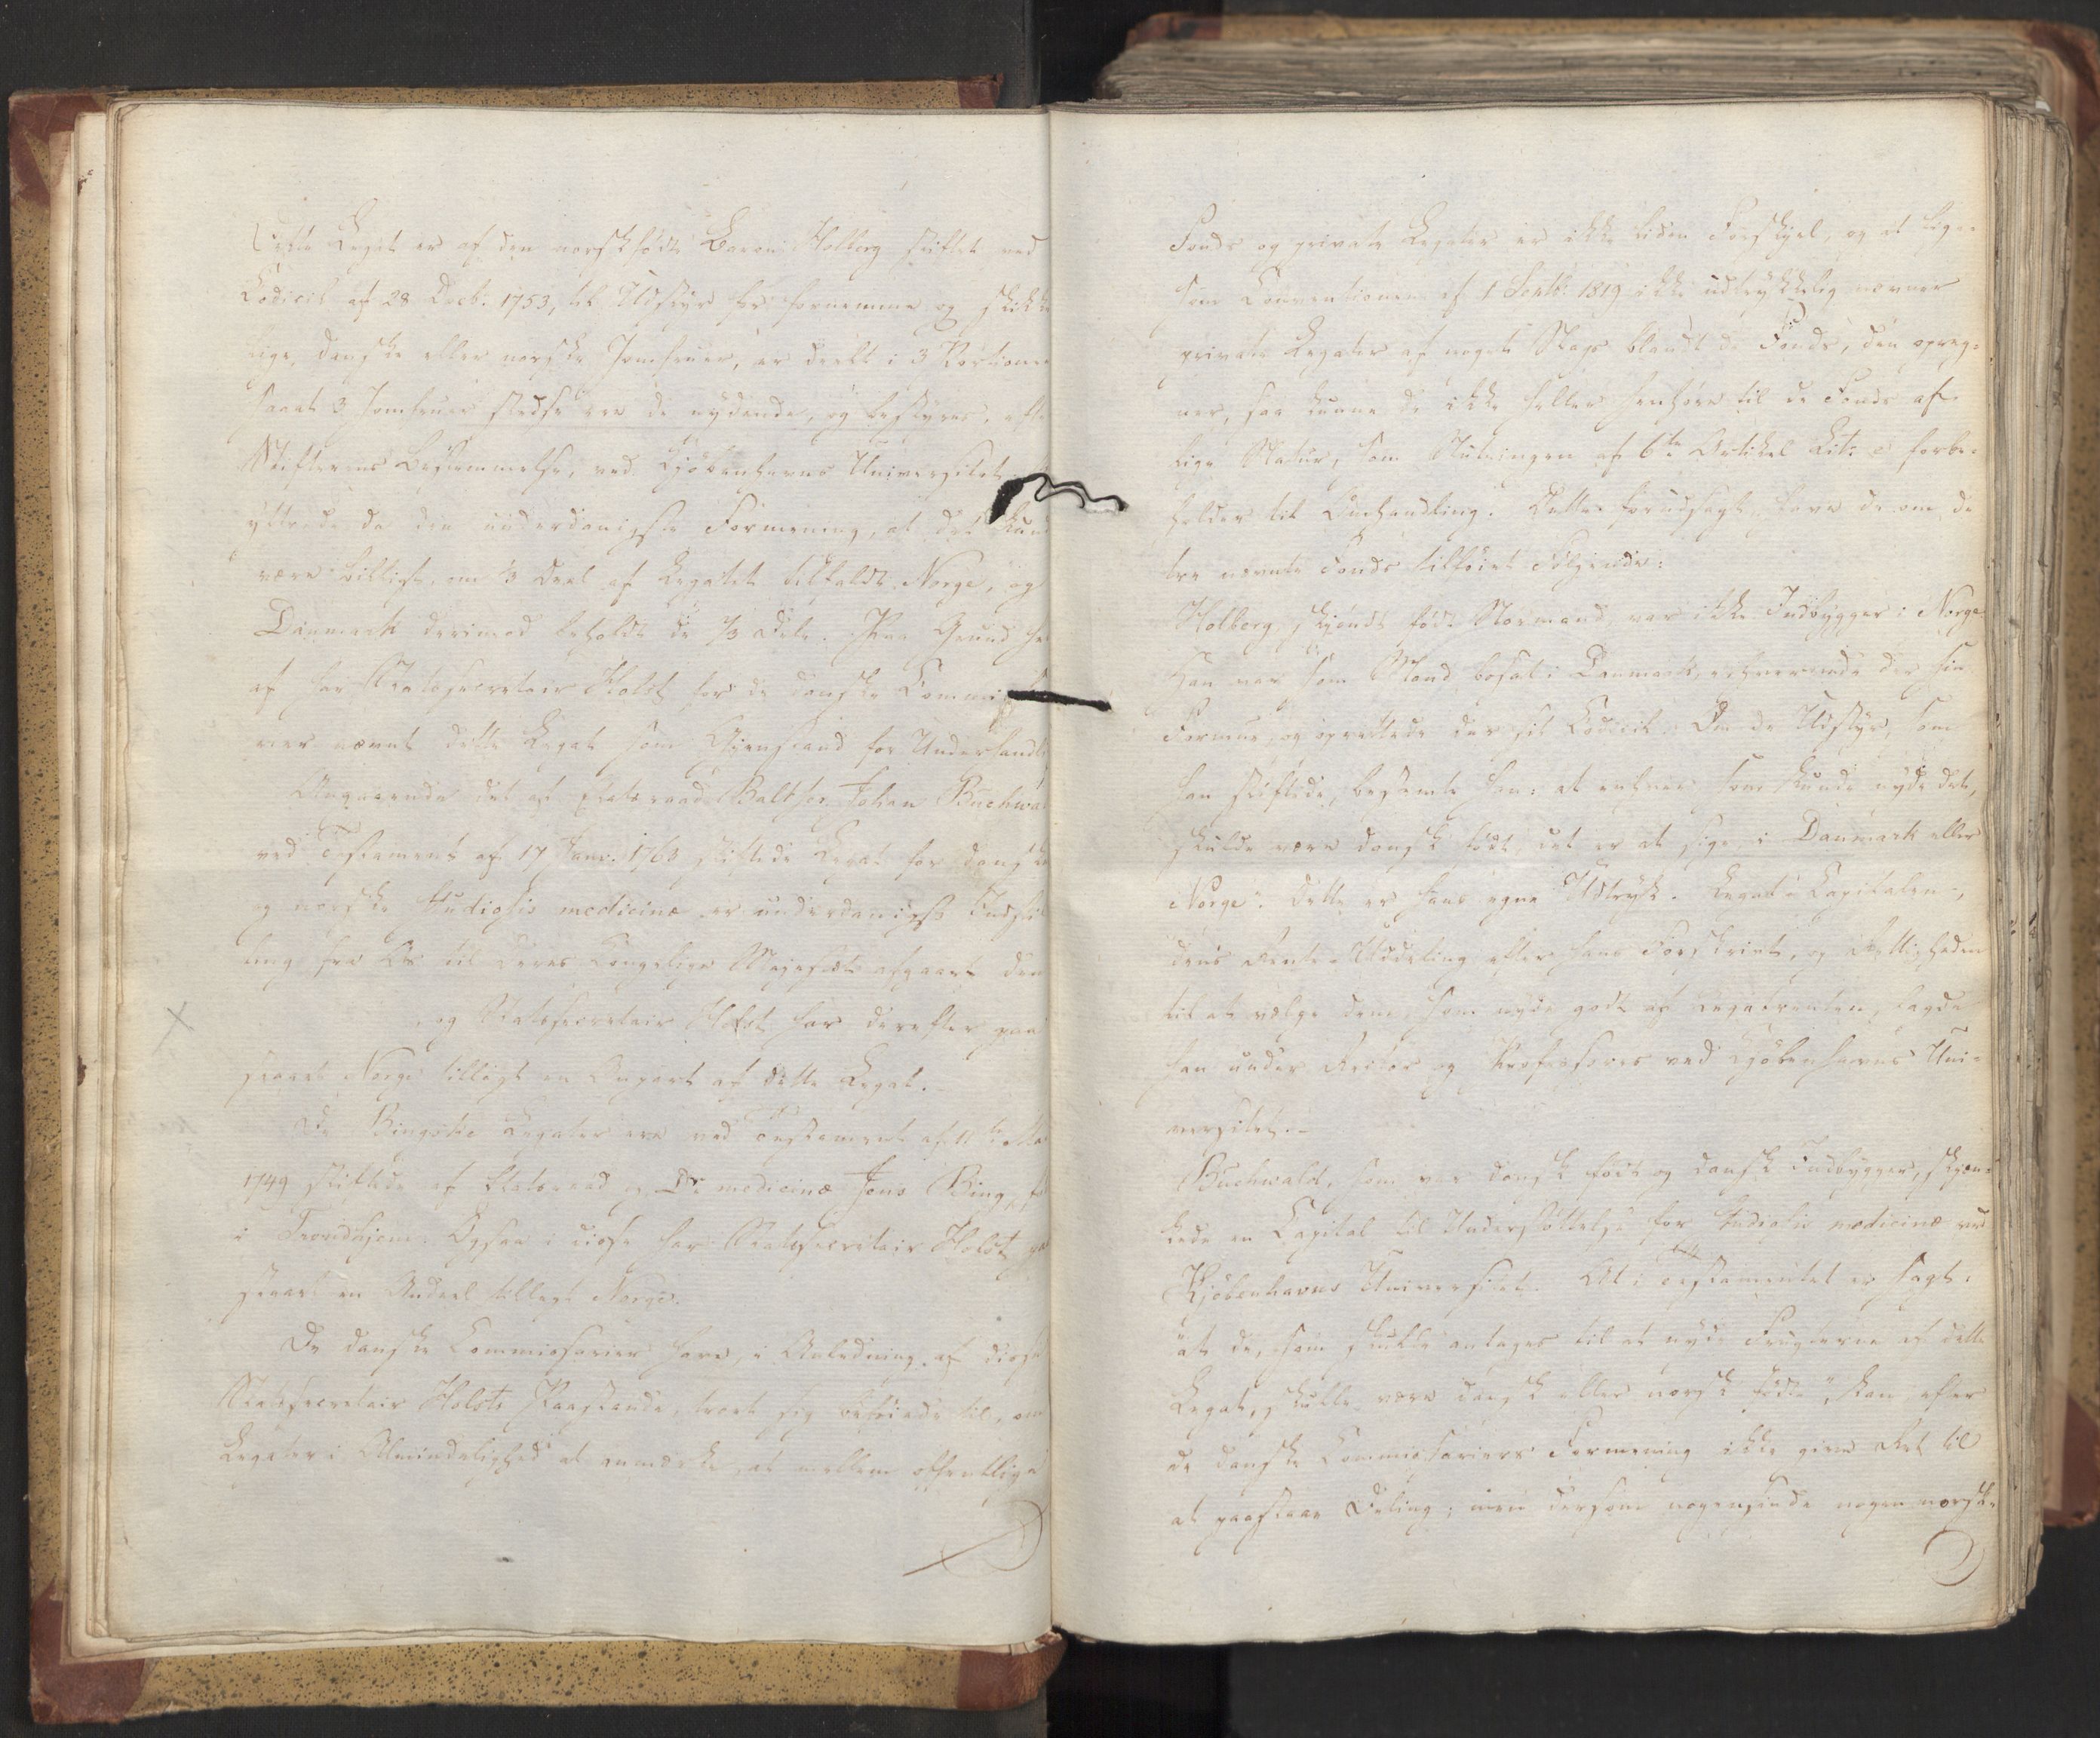 Dette Legat er af den norskfødte Baron Holberg stiftet ved
Codicil af 28 Decb. 1753, til Udstyr for fornemme og skikke
lige danske eller norske Jomfruer, er deelt i 3 Portioner
saaat 3 Jomfruer stedse ere de nydende, og bestyres, efter
Stifterens Bestemmelse, ved Kjöbenhavns Universitet
yttrede da den underdanigste Formening, at det kun
være billigt, om 1/3 Deel af Legatet tilfaldt Norge, og
Danmark derimod beholdt de 2/3 Dele. Paa Grund her
af har Statssecretair Holst for de danske Commis
rier nævnt dette Legat som Gjenstand for Underhandl
Angaaende det af Etatsraad Balthsr. Johan Buchwa
ved Testament af 17 Janr. 1763 stiftede Legat for danske
og norske studiosis medicinæ er underdanigst Indstil
ling fra Os til Deres Kongelige Majestæt afgaaet den
og Statssecretair Holst har derefter paa
staaet Norge tillagt en Anpart af dette Legat.
De Bingske Legater ere ved Testament af 11te Ma
1749 stiftede af Etatsraad og Dr. medicinæ Jens Bing, fö
i Trondhjem. Ogsaa i disse har Statssecretair Holst pa
staaet en Andeel tillagt Norge.
De danske Commissarier have, i Anledning af disse
Statssecretair Holsts Paastande, troet sig beföiede til, om
Legater i Almindelighed at anmærke, at mellem offentlige
Fonds og private Legater er ikke liden Forskjel, og at lige-
som Conventionen af 1 Septb. 1819 ikke udtrykkelig nævner
private Legater af noget Slags blandt de Fonds, den opreg-
ner, saa kunne de ikke heller henhöre til de Fonds af
lige Natur, som Slutningen af 6te Artikel Litr. c forbe-
holder til Behandling. Dette forudsagt, have de om de
tre nævnte Fonds tilföiet Fölgende:
Holberg, skjöndt föd Normand, var ikke Indbygger i Norge
Han var som Mand bosat i Danmark, erhvervede der sin
Formue, og oprettede der sit Codicil. Om de Udstyr, som
han stiftede, bestemte han: at enhver som kunde nyde det,
skulde være dansk födt, det er at sige, i Danmark eller
Norge". Dette er hans egne Udtryk. Legat-Capitalen,
dens Rente-Uddeling efter hans Forskrivt, og Rettigheden
til at vælge dem, som nyde godt af Legatrenten, lagde
han under Rector og Professores ved Kjöbenhavns Uni-
versitet. -
Buchwald, som var dansk födt og dansk Indbygger, skjæn-
kede en Capital til Understöttelse for studiosis medicinæ ved
Kjöbenhavns Universitet. At i Testamentet er sagt:
"at de, som skulle antages til at nyde Frugterne af dette
Legat, skulle være dansk eller norsk födte", kan efter
de danske Commissariers Formening ikke give Ret til
at paastaae Deling; men dersom nogensinde nogen norsk-